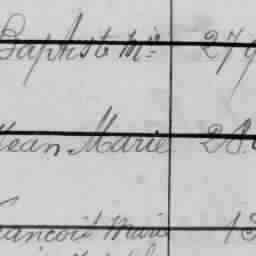 Baptiste Mie 279
Jean Marie 28
François Marie 13